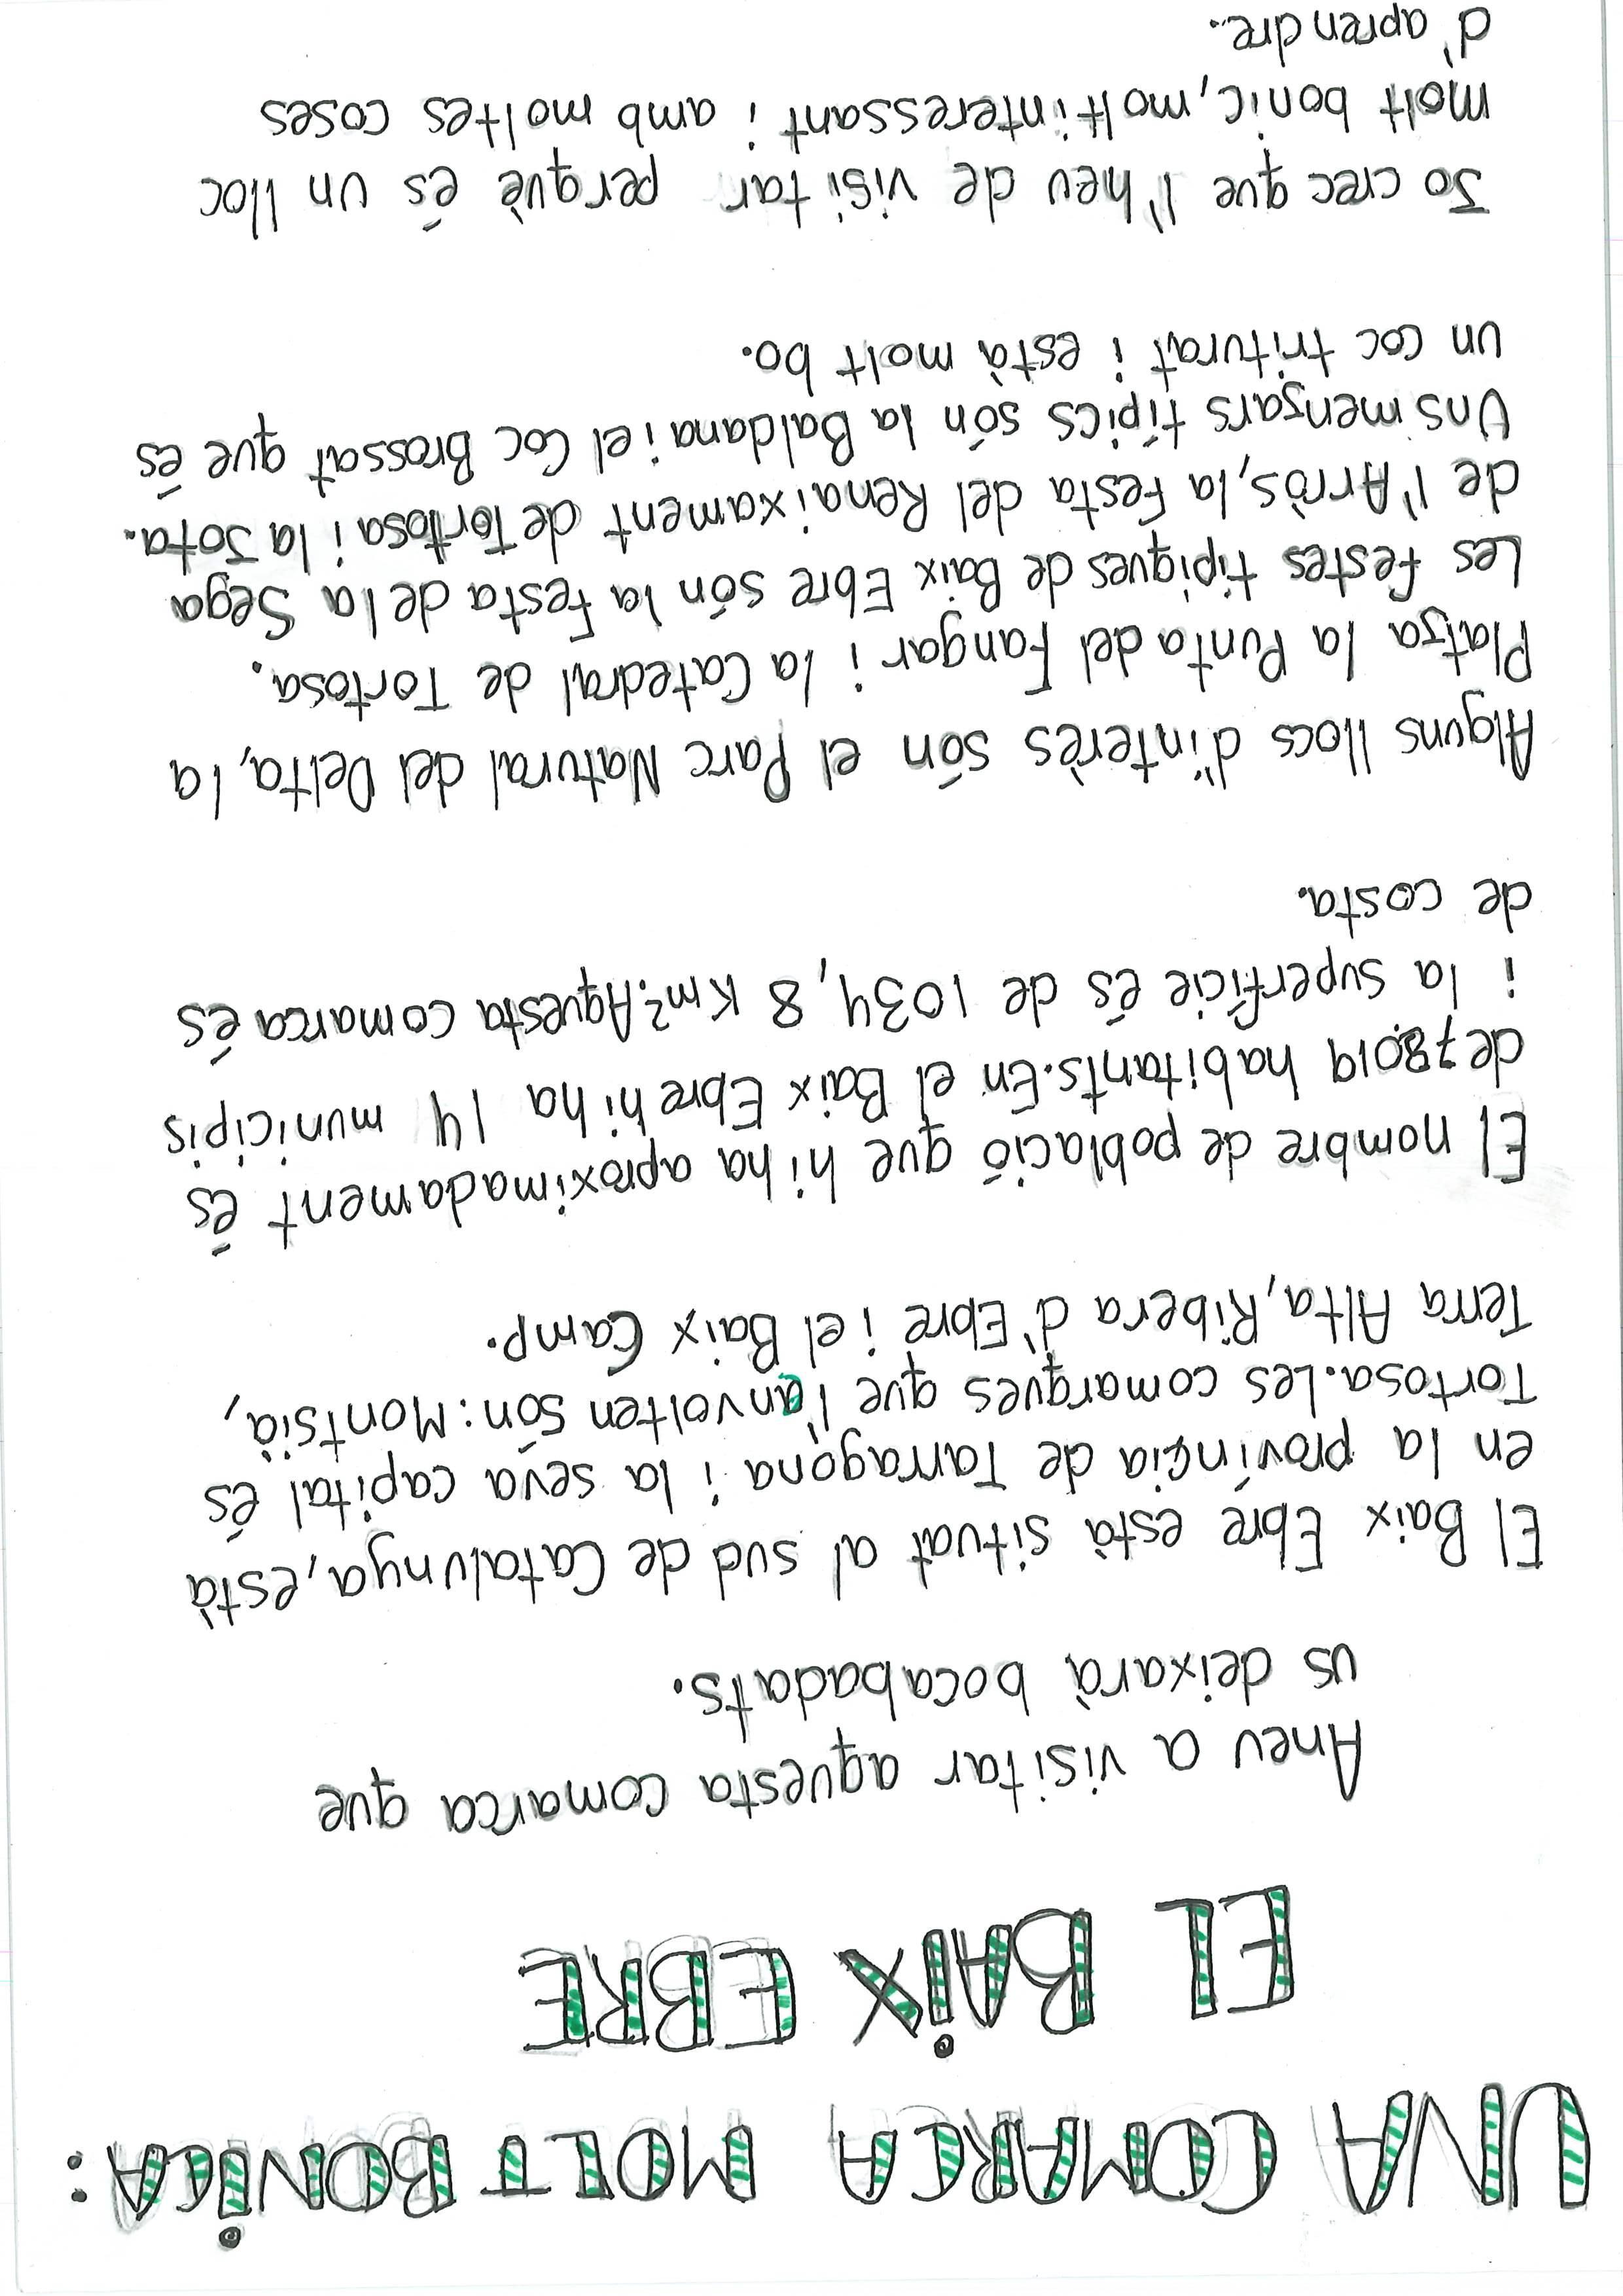 UNA COMARCA MOLT BONiCA:
EL BAiX EBRE
Aneu a visitar aquesta comarca que
us deixarà bocabadats.
El Baix Ebre està situat al sud de Catalunya, està
en la província de Tarragona i la seva capital és
Tortosa. Les comarques que l'anvolten són: Montsià,
Terra Alta, Ribera d'Ebre i el Baix Camp.
El nombre de població que hi ha aproximadament és
de 78.019 habitants. En el Baix Ebre hi ha 14 municipis
i la superfície és de 1034,8 Km². Aquesta comarca és
de costa.
Alguns llocs d'interès són el Parc Natural del Delta, la
Platja la Punta del Fangar i la Catedral de Tortosa.
Les festes típiques de Baix Ebre són la festa de la Sega
de l'Arròs, la Festa del Renaixament de Tortosa i la Jota.
Uns menjars típics són la Baldana i el Coc Brossat que és
un coc triturat i està molt bo.
Jo crec que l'heu de visitar perquè és un lloc
molt bonic, molt interessant i amb moltes coses
d'aprendre.